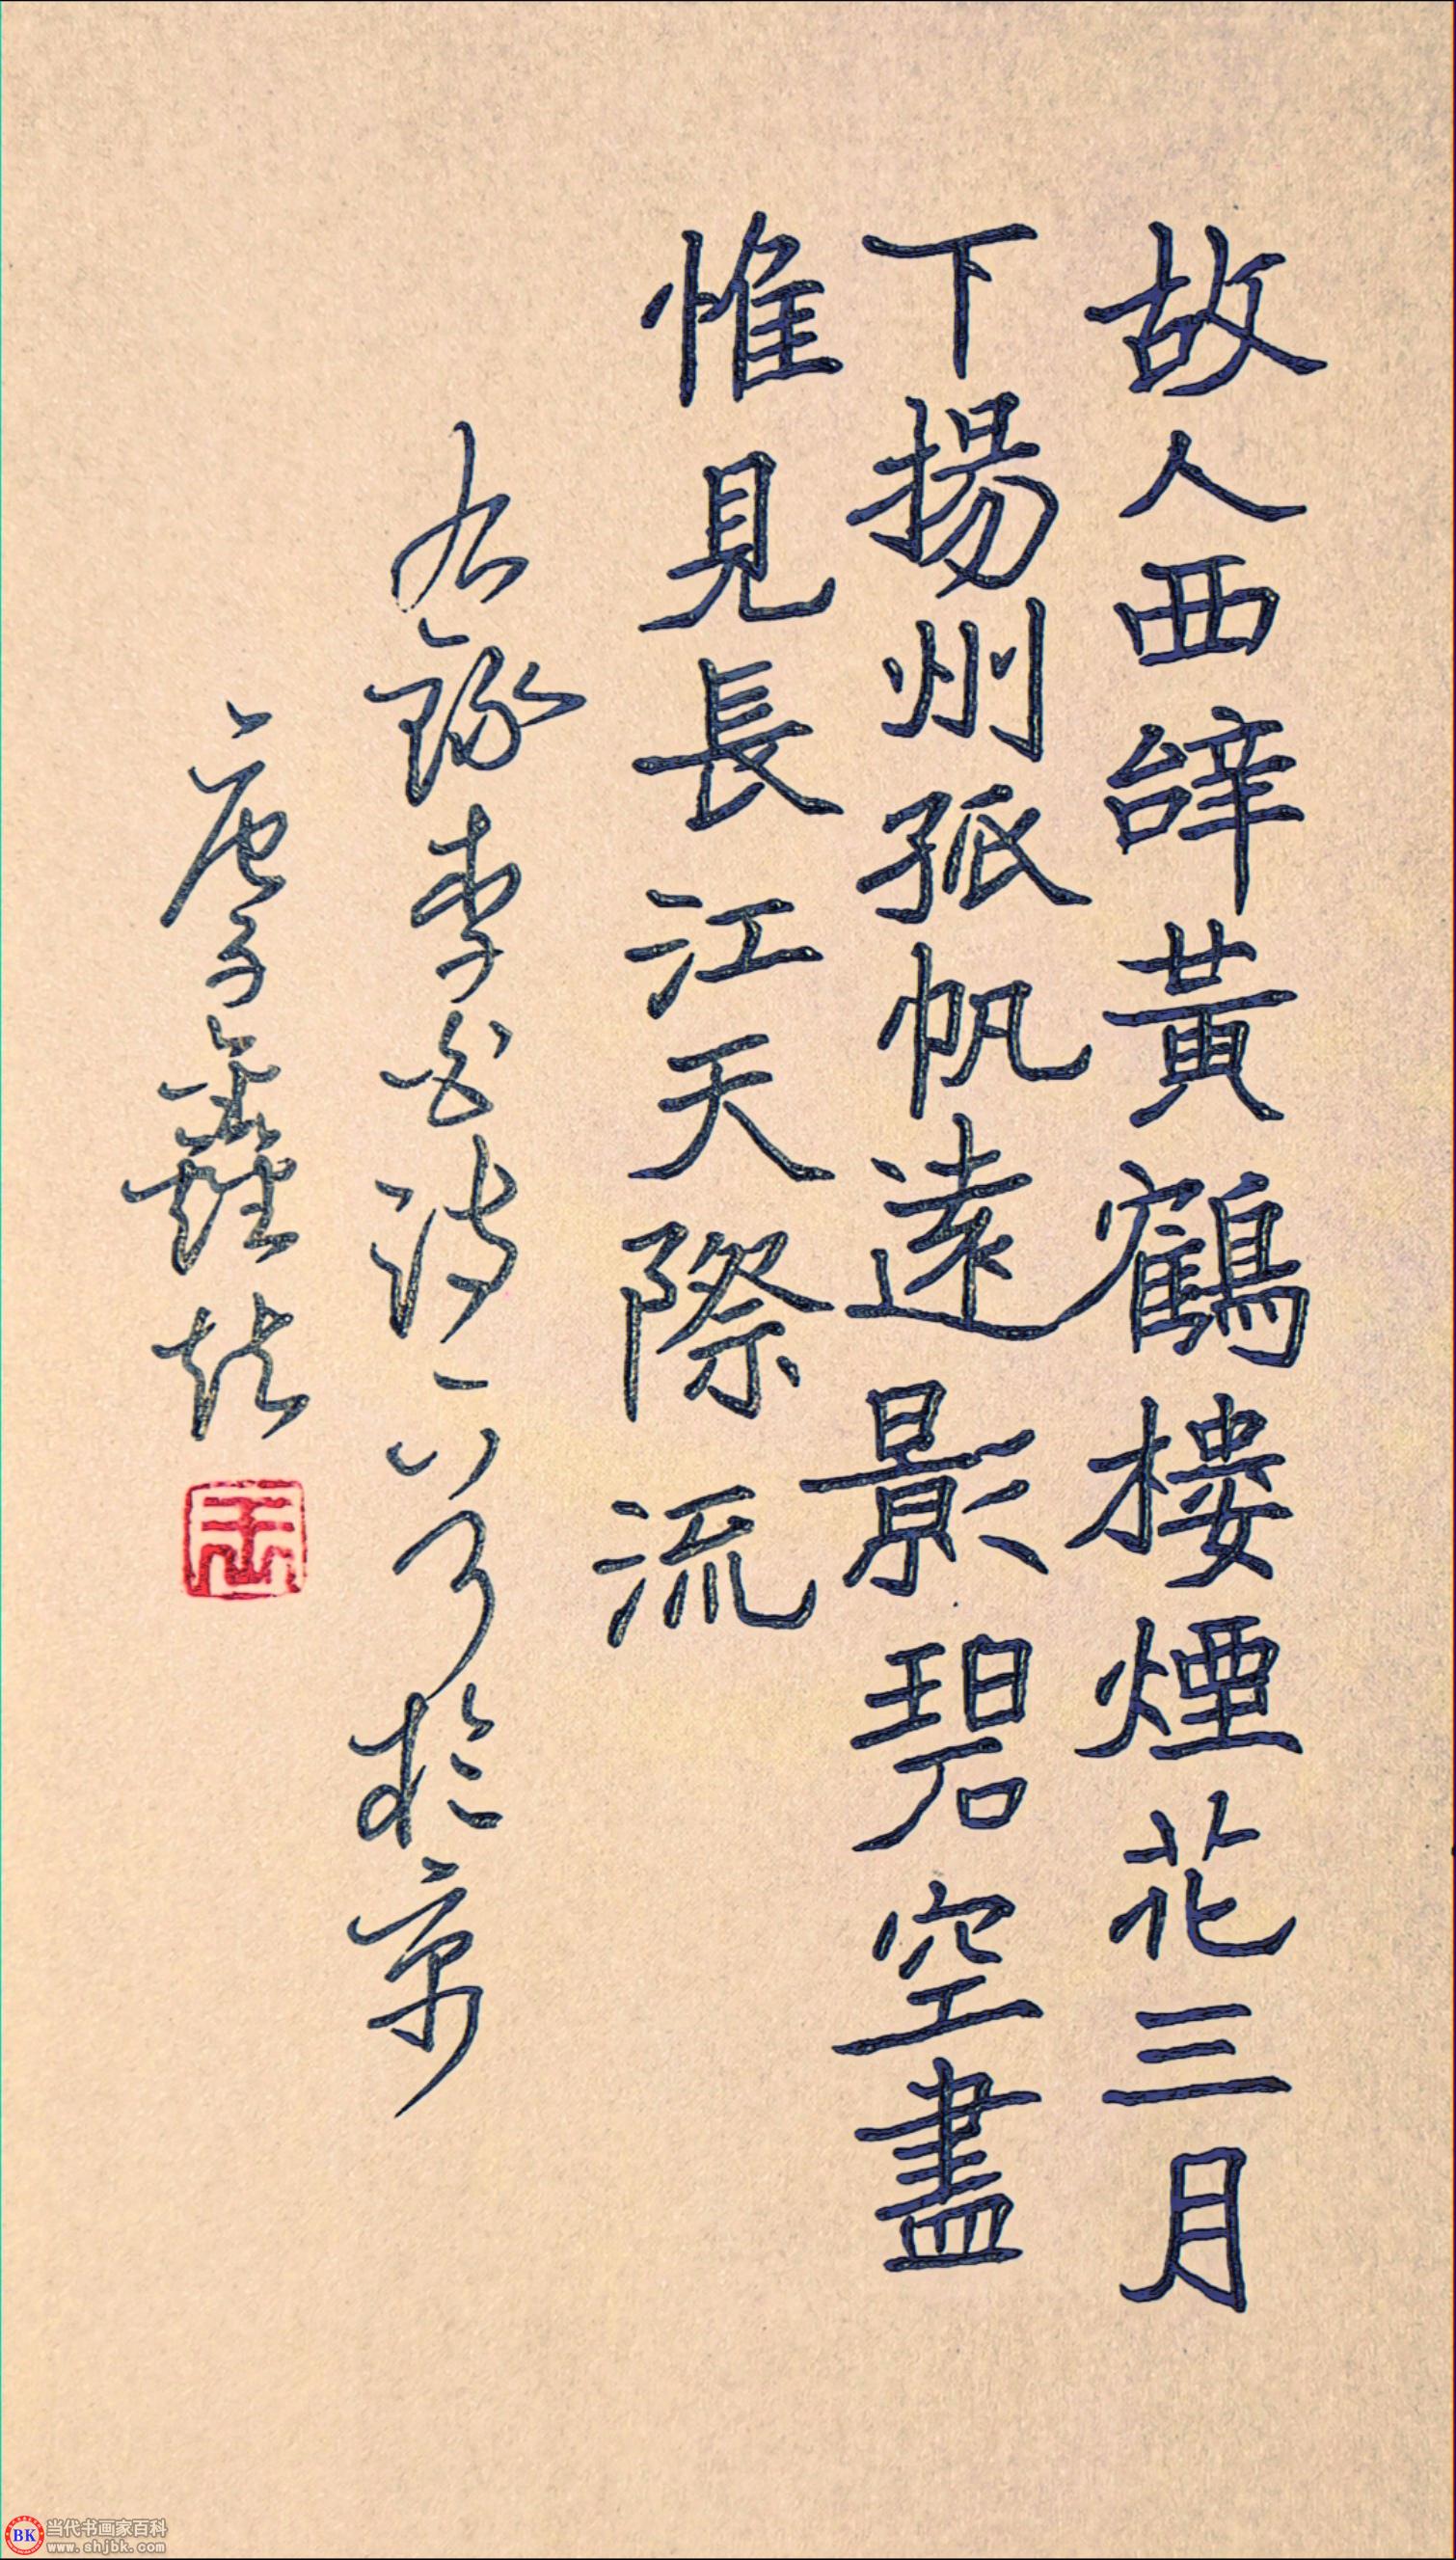 故人西辭黃鶴樓煙花三月
下揚州孤帆遠影碧空盡
惟見長江天際流
右錄李白詩一首於京
唐子
当代书画家百科
www.shjbk.com